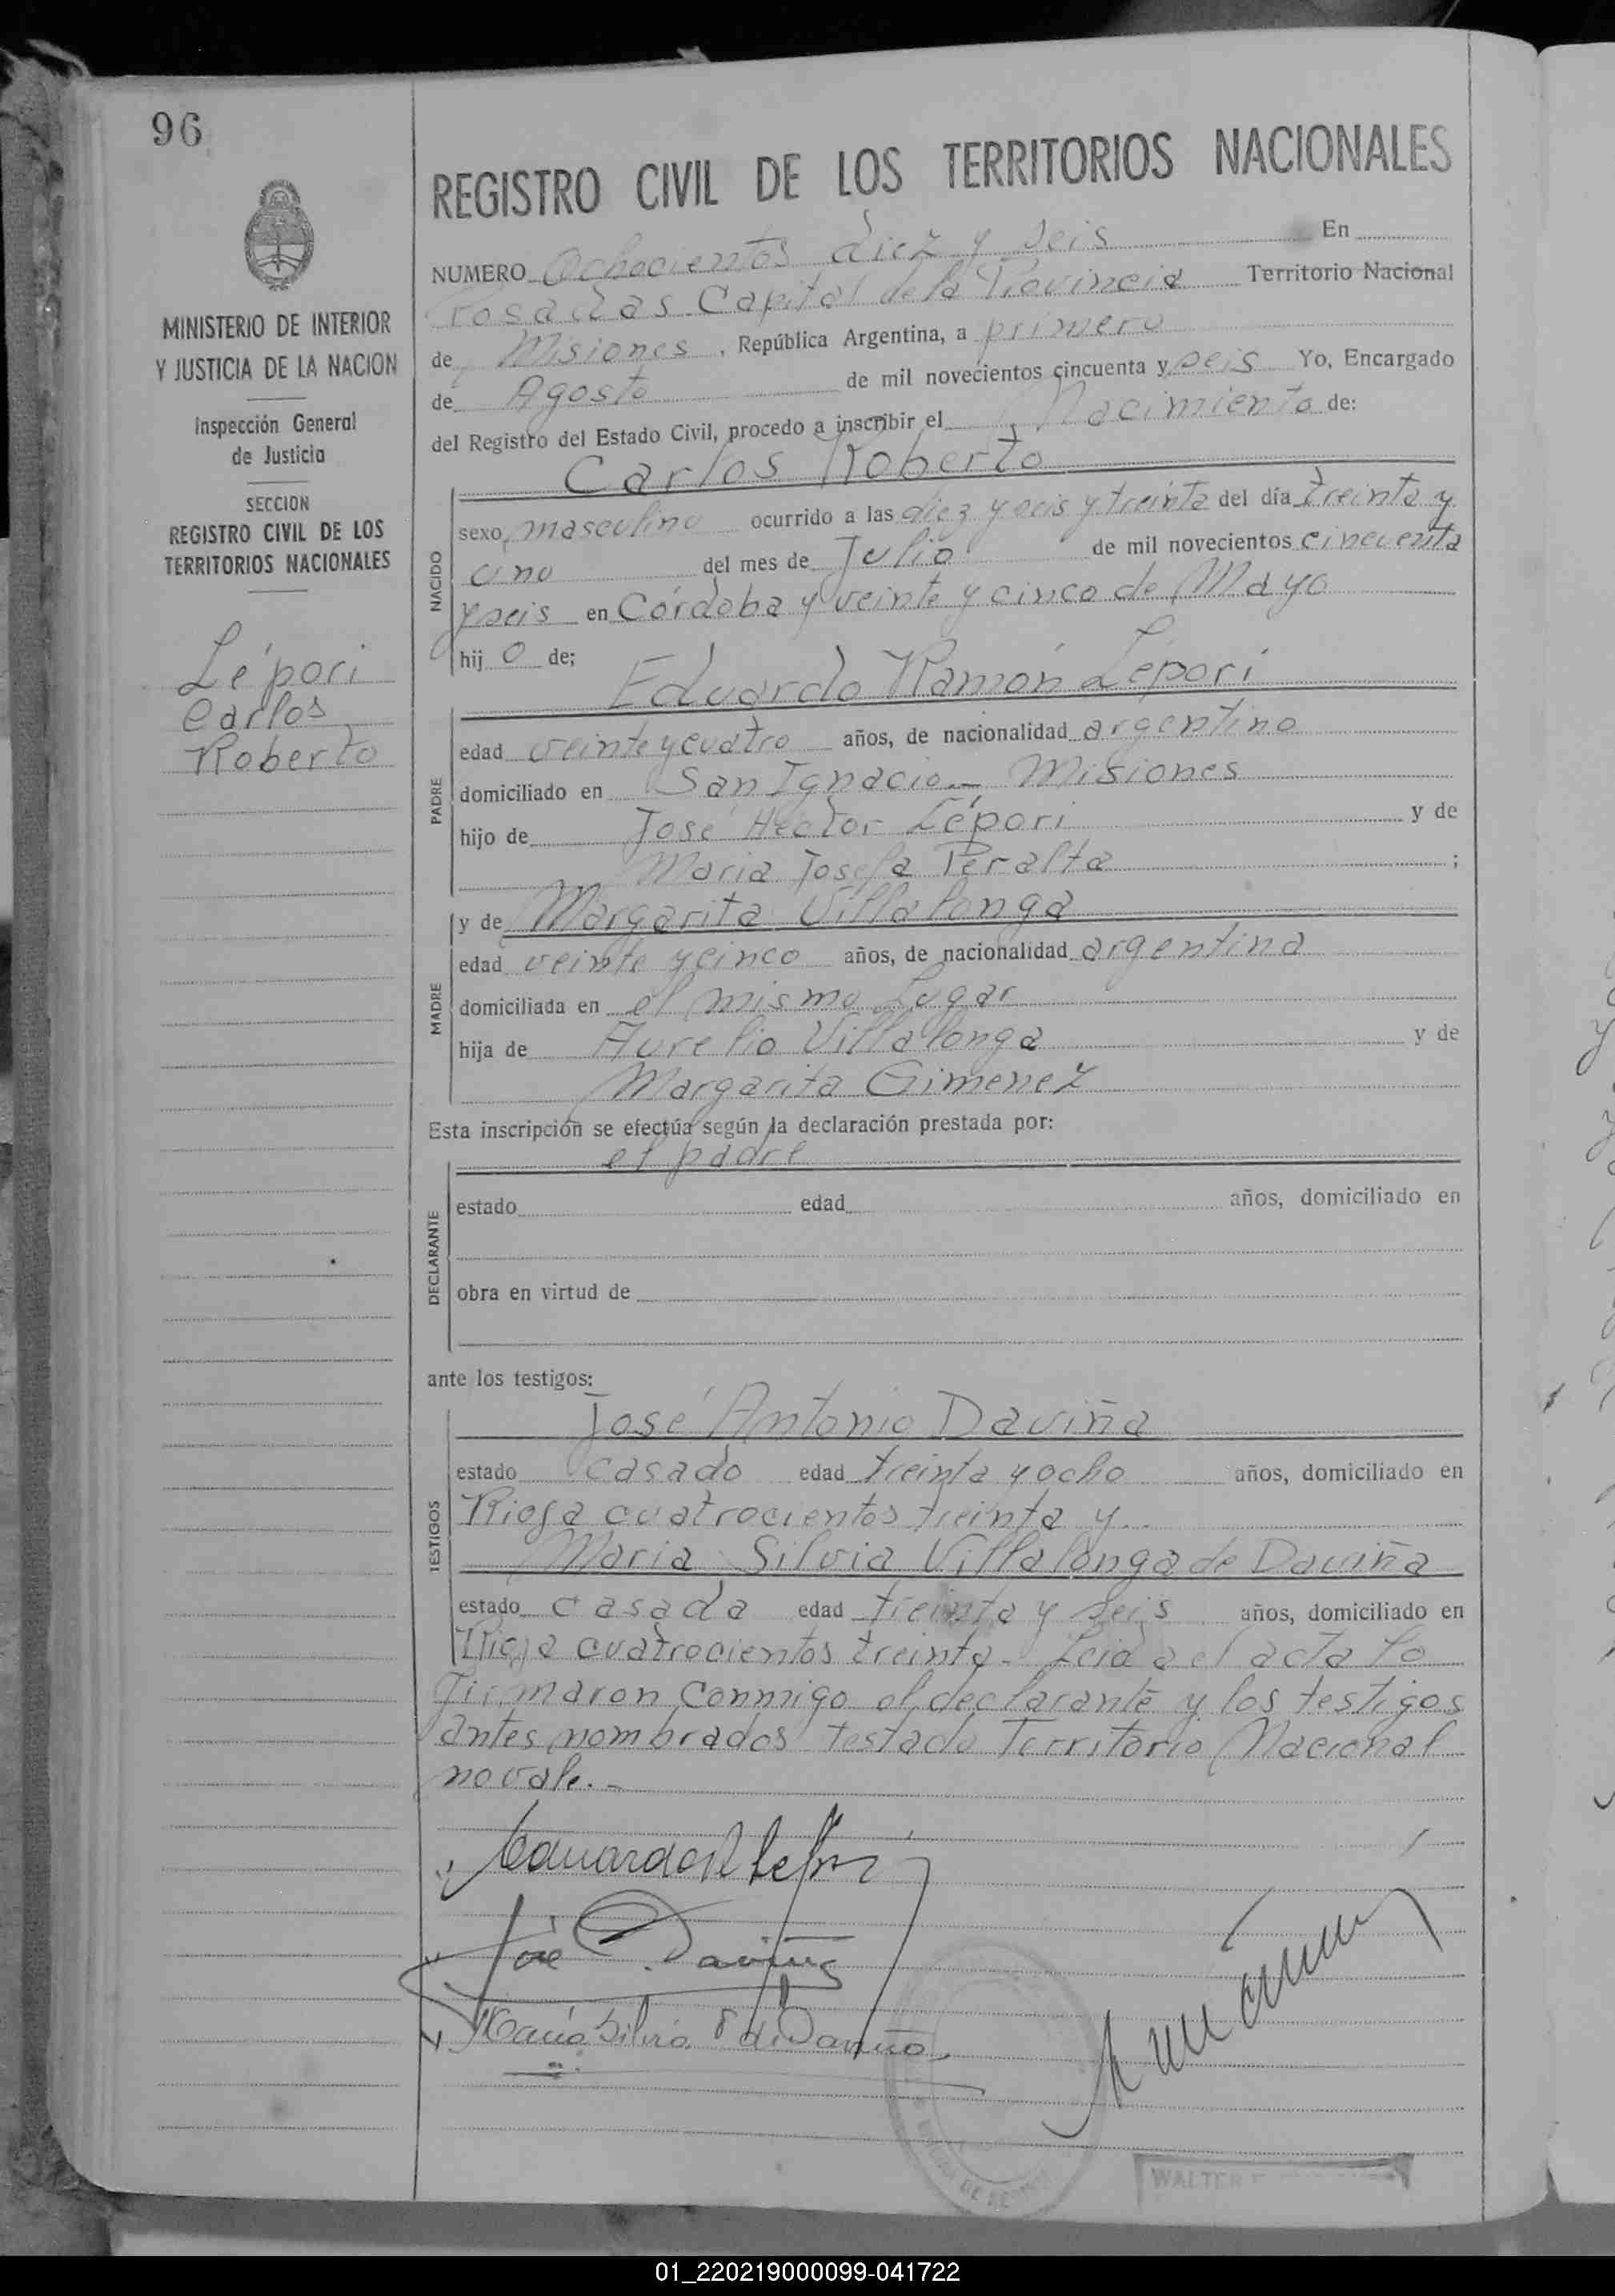 96
REGISTRO CIVIL DE LOS TERRITORIOS NACIONALES
MINISTERIO DE INTERIOR
Y JUSTICIA DE LA NACION
Inspección General
de Justicia
SECCION
REGISTRO CIVIL DE LOS
TERRITORIOS NACIONALES
Lépori
Carlos
Roberto
NUMERO Ochocientos diez y seis En
Posadas Capital de la Provincia Territorio Nacional
de Misiones, República Argentina, a primero
de Agosto de mil novecientos cincuenta y seis Yo, Encargado
del Registro del Estado Civil, procedo a inscribir el Nacimiento de:
Carlos Roberto
NACIDO
sexo masculino ocurrido a las diez y seis y treinta del día treinta y
uno del mes de Julio de mil novecientos cincuenta
y seis en Córdoba y veinte y cinco de Mayo
hijo de;
Eduardo Ramón Lépori
PADRE
edad veinte y cuatro años, de nacionalidad argentino
domiciliado en San Ignacio - Misiones
hijo de José Héctor Lépori y de
Maria Josefa Peralta ;
MADRE
y de Margarita Villalonga
edad veinte y cinco años, de nacionalidad argentina
domiciliada en el mismo lugar
hija de Aurelio Villalonga y de
Margarita Gimenez
Esta inscripción se efectúa según la declaración prestada por:
el padre
DECLARANTE
estado edad años, domiciliado en
obra en virtud de
ante los testigos:
José Antonio Daviña
TESTIGOS
estado casado edad treinta y ocho años, domiciliado en
Rioja cuatrocientos treinta y
Maria Silvia Villalonga de Daviña
estado casada edad treinta y seis años, domiciliado en
Rioja cuatrocientos treinta - Leida el acta la
firmaron conmigo el declarante y los testigos
antes nombrados testado Territorio Nacional
no vale. -
Eduardo R Lépori
José Daviña
Maria Silvia V de Daviña
WALTER
01_220219000099-041722